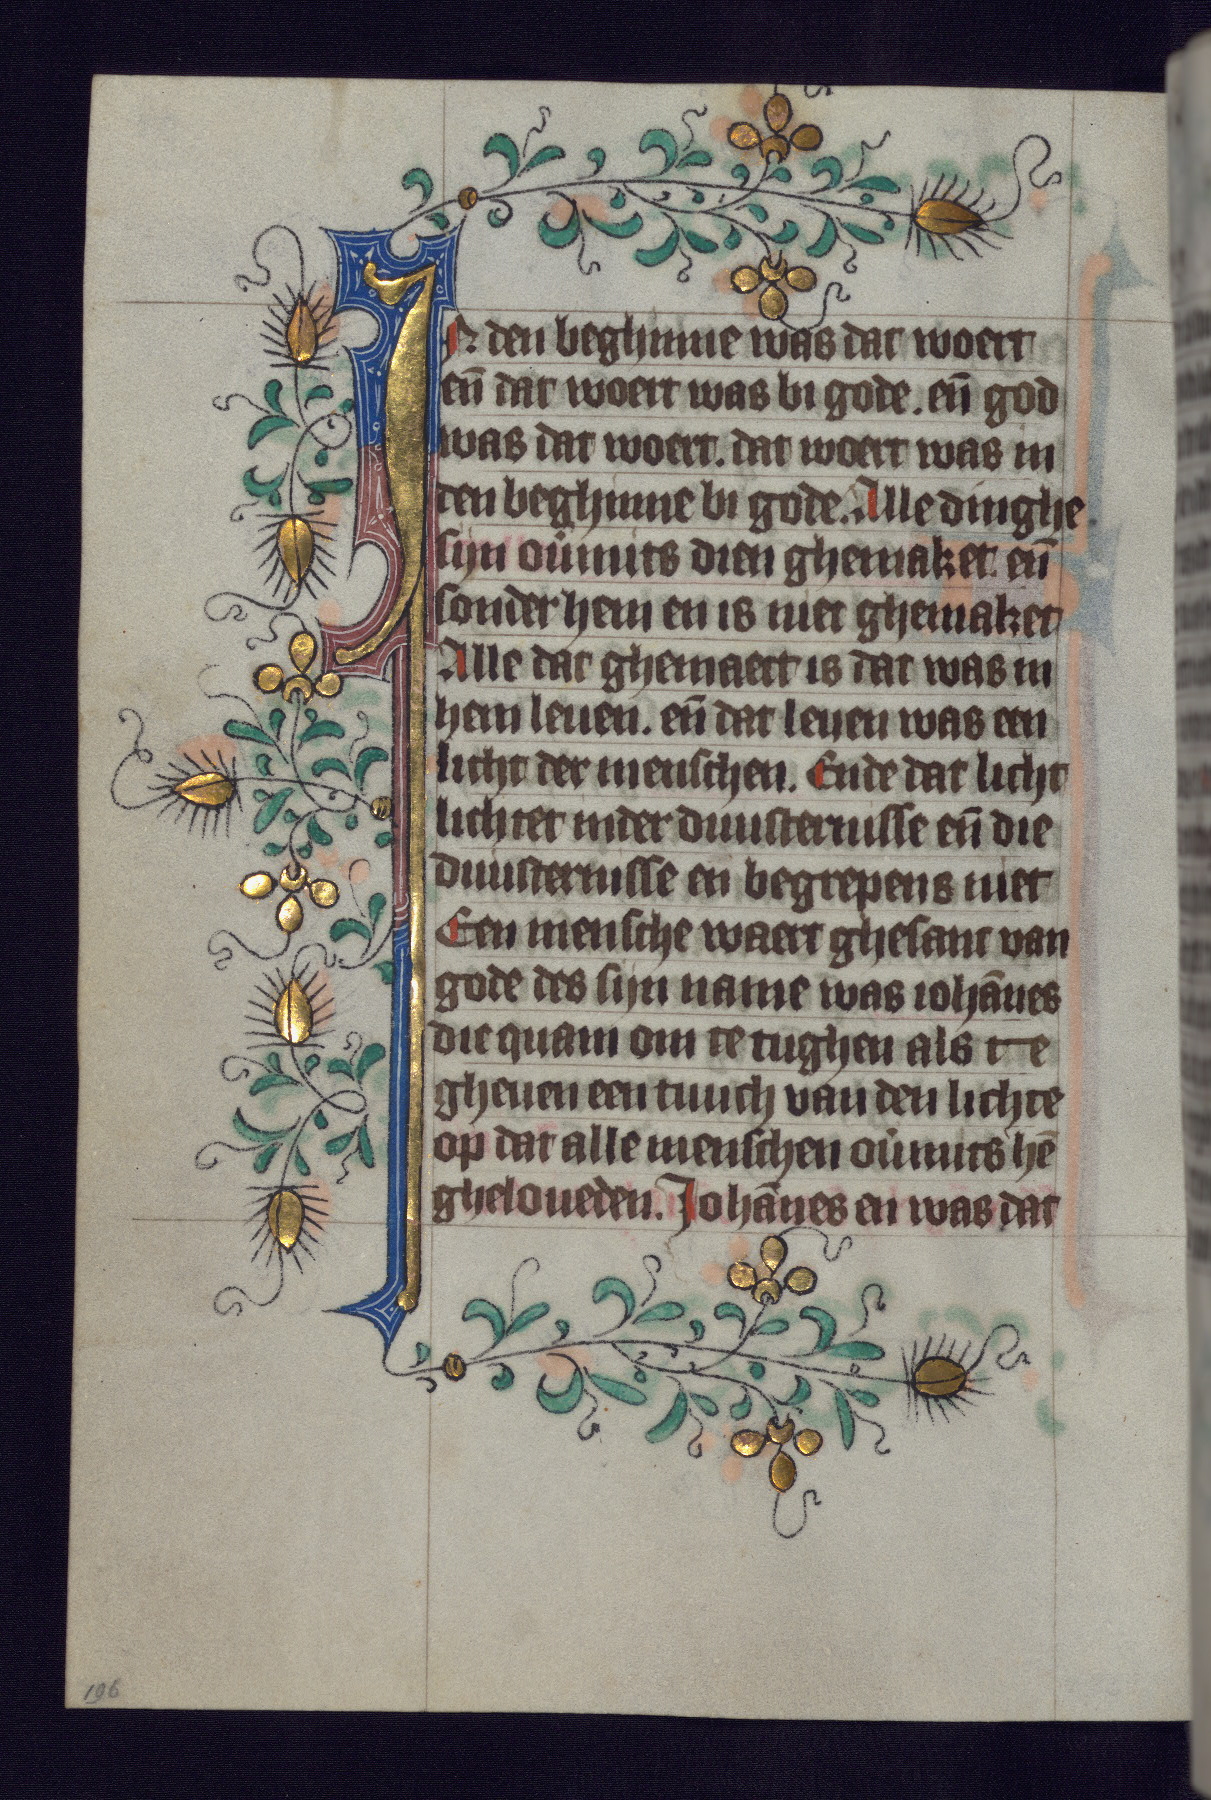 IN den beghinne was dat woert
en̄ dat woert was bi gode. en̄ god
was dat woert. dat woert was in
den beghinne bi gode. Alle dinghe
sijn ou͛mits dien ghemaket. en̄
sonder hem en is niet ghemaket
Alle dat ghemaect is dat was in
hem leuen. en̄ dat leuen was een
licht der menschen. Ende dat licht
lichtet inder duusternisse en̄ die
duusternisse en begrepens niet
Een mensche waert ghesant van
gode des sijn name was iohānes
die quam om te tughen als te
gheuen een tuuch van den lichte
op dat alle menschen ou͛mits hē
gheloueden. Johānes en was dat
196